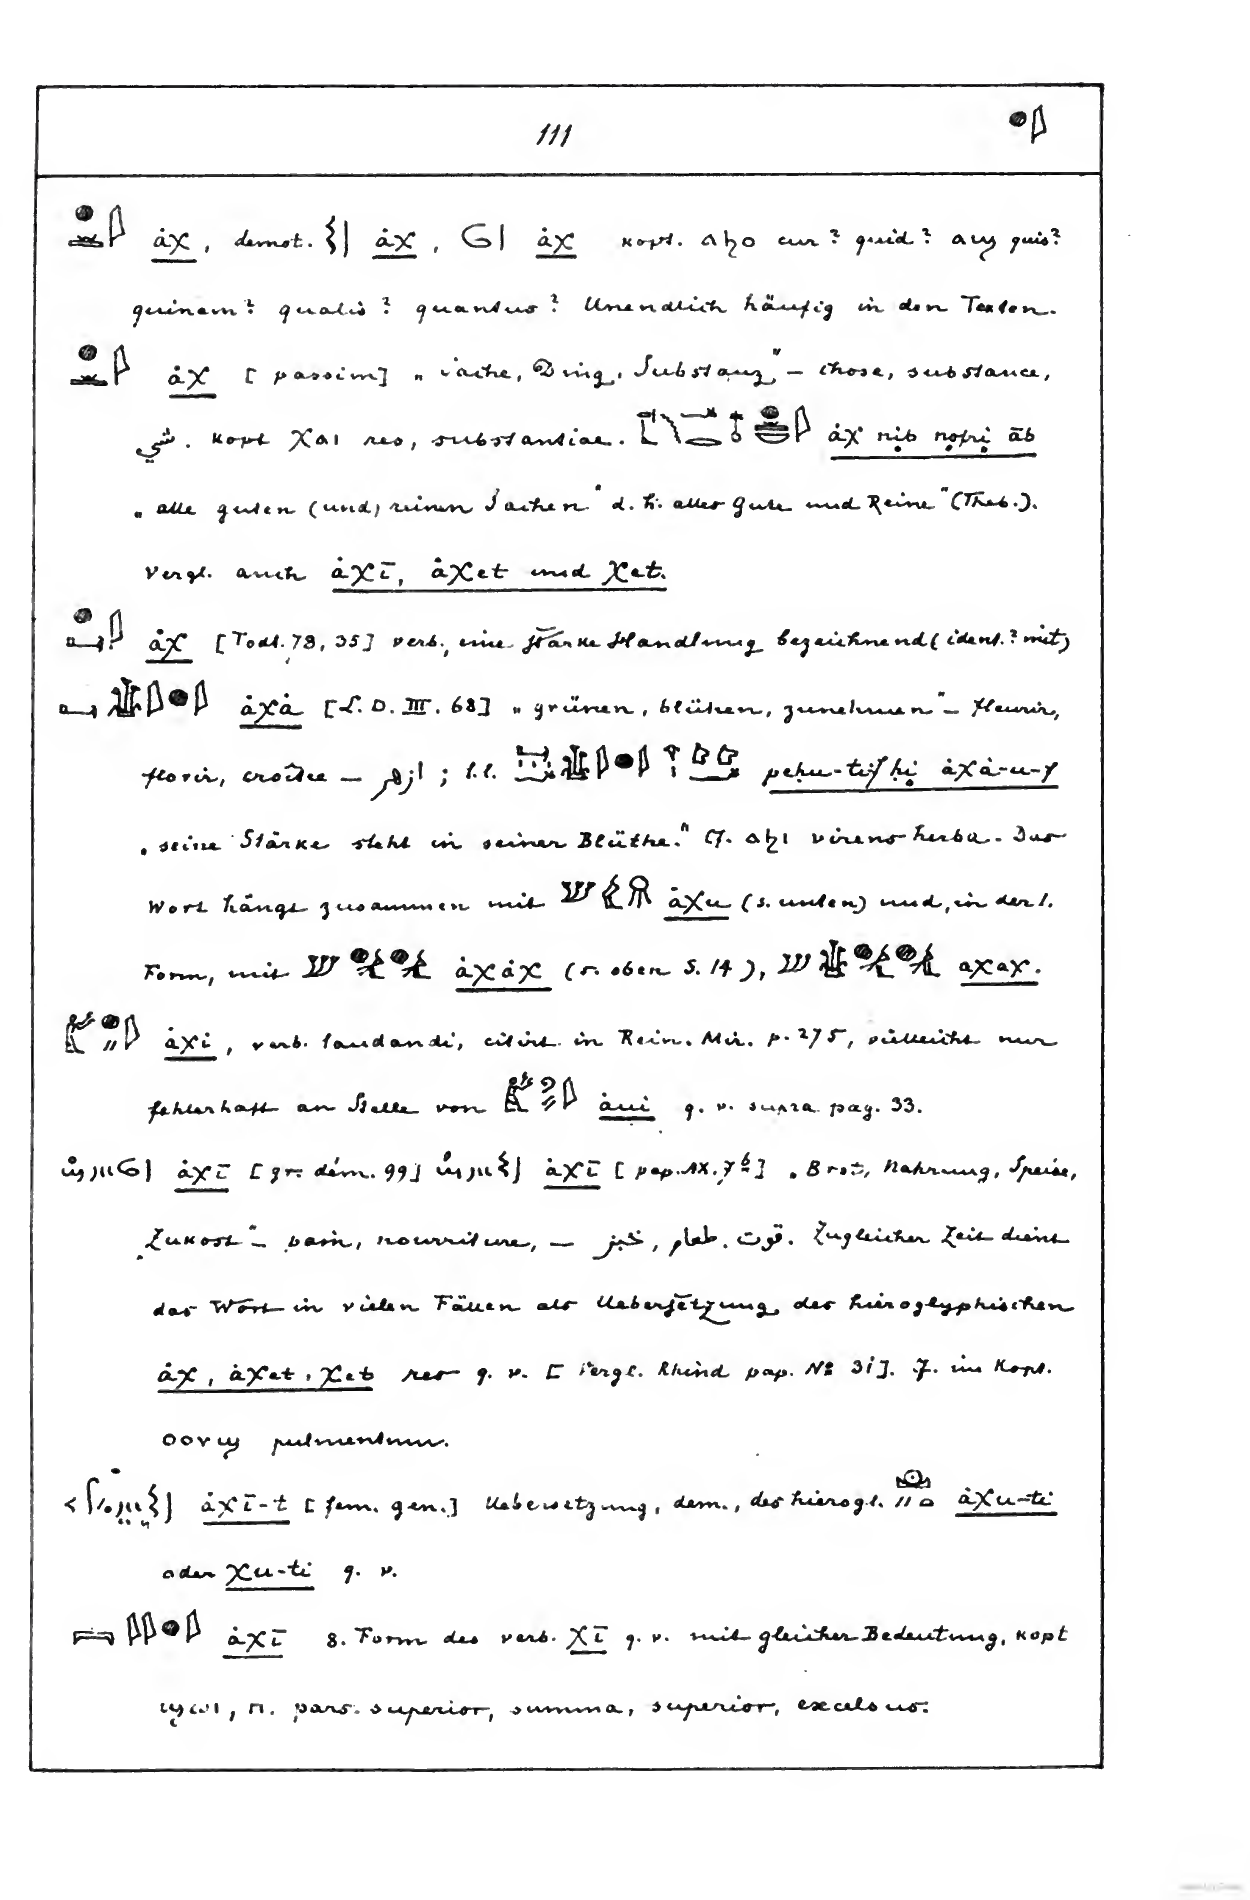 111
ȧχ, demot. ȧχ, ȧχ kopt. ⲁϧⲟ cur? quid? ⲁϣ quis?
quinam? qualis? quantus? Unendlich häufig in den Texten.
ȧχ [passim] „Sache, Ding, Substanz“ – chose, substance,
شي. kopt ⲭⲁⲓ res, substantiae. ȧχ nịb nọfrị āb
„alle guten (und) reinen Sachen“ d. h. alles Gute und Reine“ (Theb.).
Vergl. auch ȧχī, ȧχet und χet.
ȧχ [Todt. 78, 35] verb., eine starke Handlung bezeichnend (ident.? mit)
ȧχȧ [L. D. III. 68] „grünen, blühen, zunehmen“ – fleurir,
florir, croître – ازهر ; l.l. peḥu-tif ḥị ȧχȧ-u-f
„seine Stärke steht in seiner Blüthe.“ Cf. ⲁϧⲓ virens herba. Das
Wort hängt zusammen mit ȧχu (s. unten) und, in der l.
Form, mit ȧχȧχ (s. oben S. 14), aχaχ.
ȧχi, verb. laudandi, citirt in Rein. Mir. p. 275, vielleicht nur
fehlerhaft an Stelle von ȧui q. v. supra pag. 33.
ȧχī [gr. dém. 99] ȧχī [pap. 1X. 7 b] „Brot, Nahrung, Speise,
Zukost“ – pain, nourriture, – خبز, طعام, قوت. Zugleicher Zeit dient
das Wort in vielen Fällen als Uebersetzung des hieroglyphischen
ȧχ, ȧχet, χet res q. v. [Vergl. Rhind pap. № 31]. Cf. im Kopt.
ⲟⲟⲩϣ pulmentum.
ȧχī-t [fem. gen.] Uebersetzung, dem., des hierogl. ȧχu-ti
oder χu-ti q. v.
ȧχī 8. Form des verb. χī q. v. mit gleicher Bedeutung, kopt
ϣⲱⲓ, ⲡ. pars superior, summa, superior, excelsus.